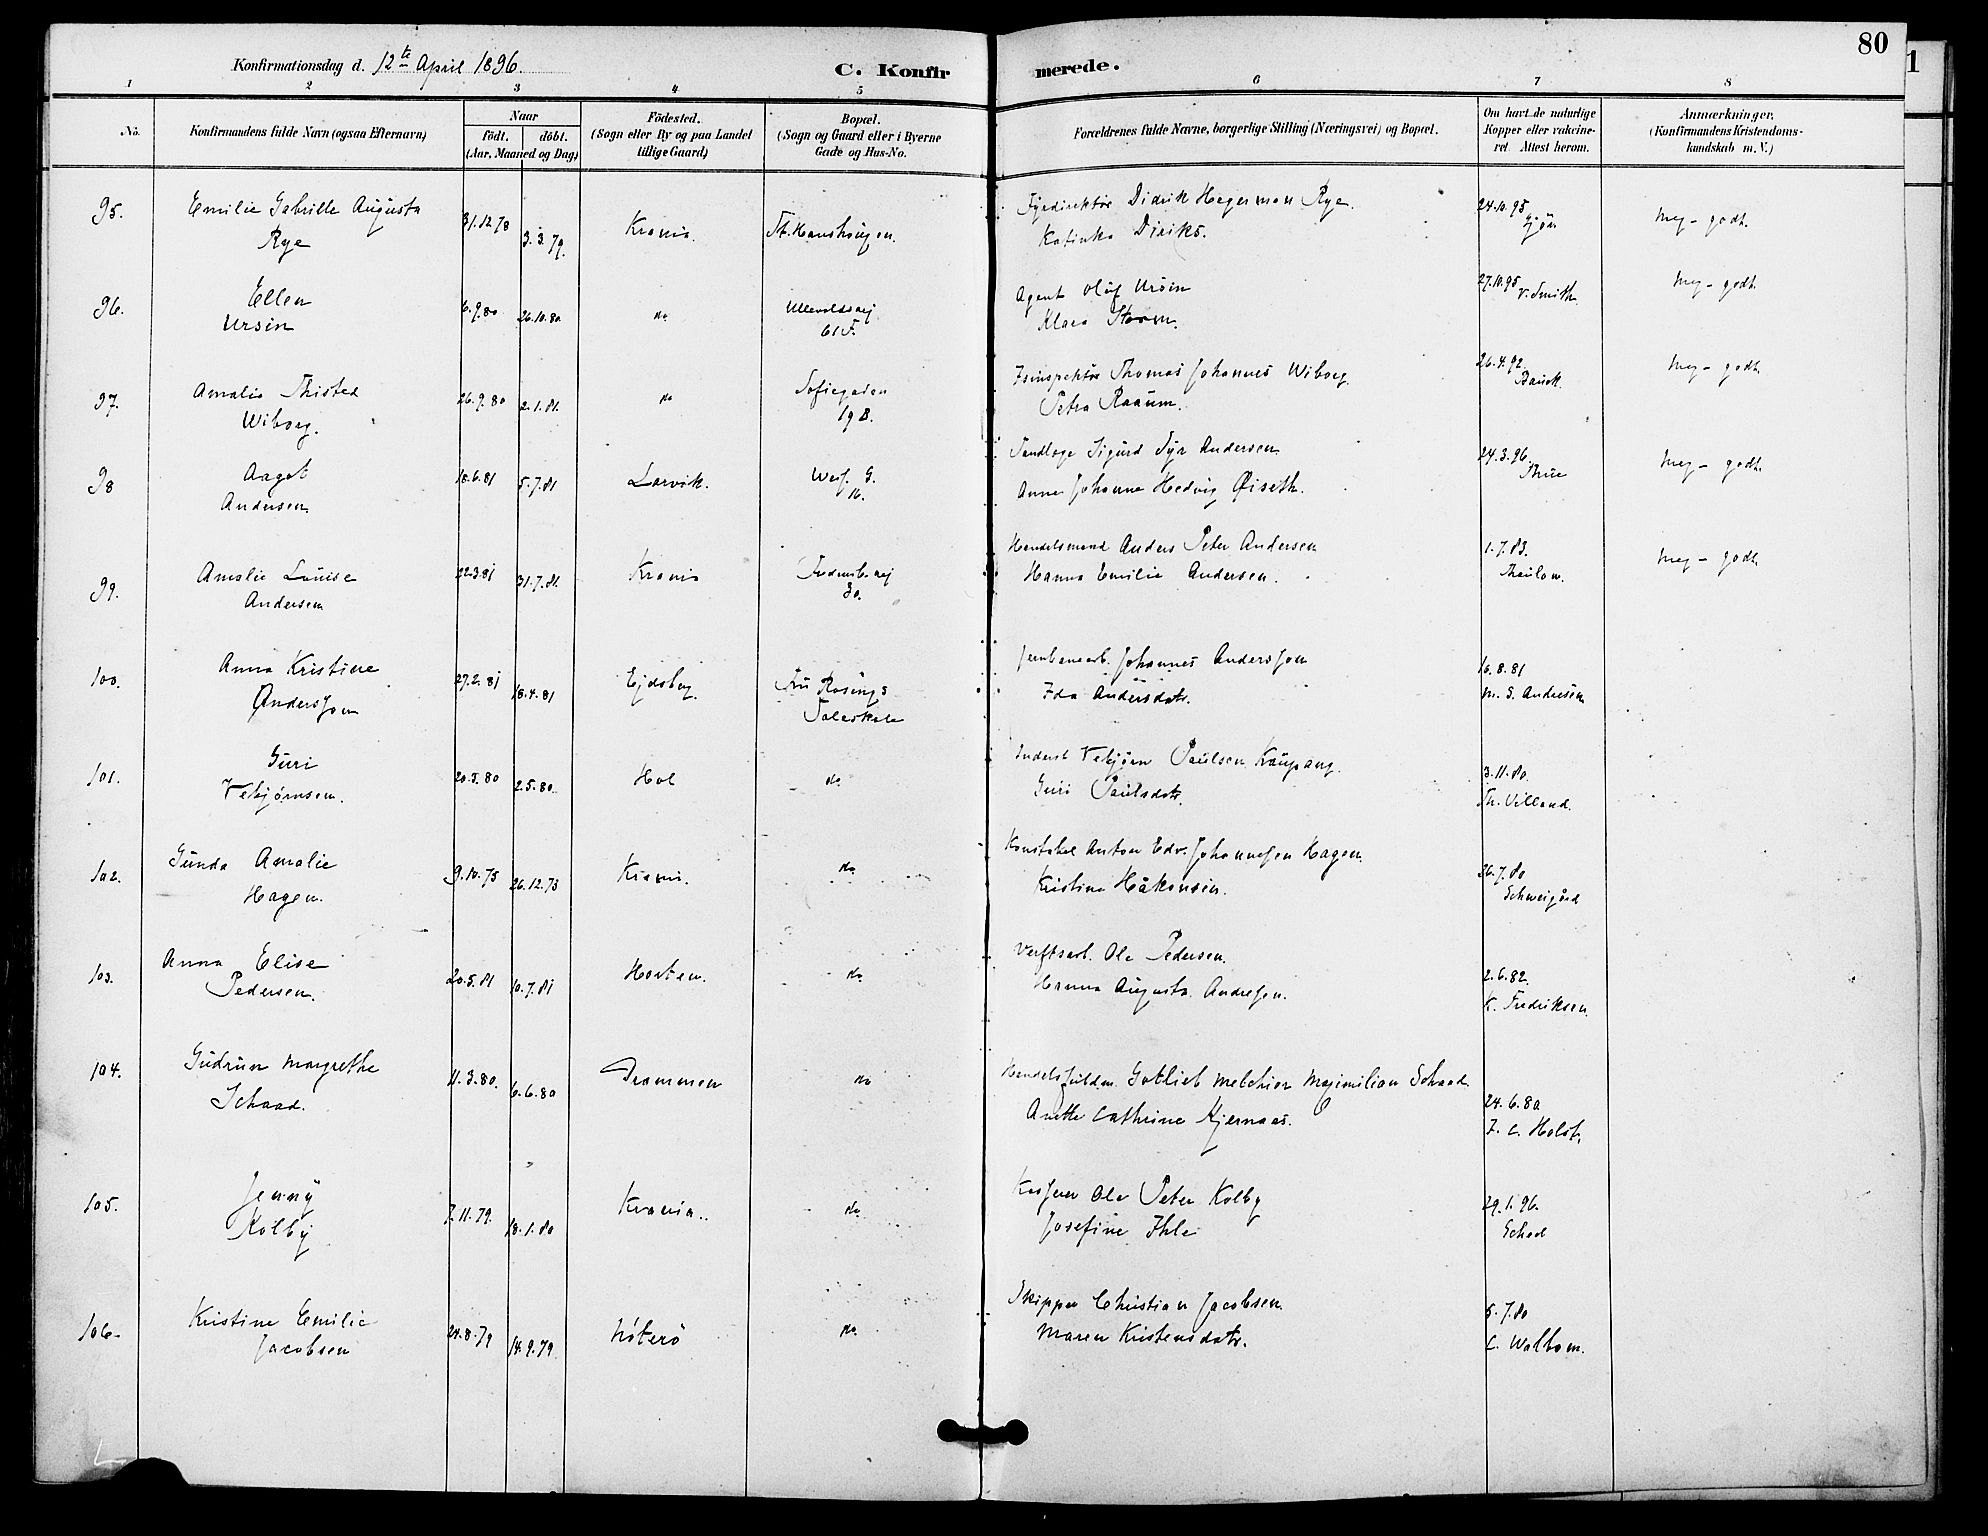 80
1
Konfirmationsdag d. 12te April 1896.
C. Konfirmerede.
1 2 3 4 5 6 7 8
No.
Konfirmandens fulde Navn (ogsaa Efternavn)
Naar
födt. döbt.
(Aar, Maaned og Dag)
Födested.
(Sogn eller By og paa Landet
tillige Gaard)
Bopæl.
(Sogn og Gaard eller i Byerne
Gade og Hus-No.
Forældrenes fulde Navne, borgerlige Stilling (Næringsvei) og Bopæl.
Om havt de naturlige
Kopper eller vakcine-
ret. Attest herom.
Anmærkninger.
(Konfirmandens Kristendoms-
kundskab m. V.)
95. Emilie Gabrielle Augusta
Rye
31.12.78 3.3.79. Krania St. Hanshaugen.
Fyrdirektør Didrik Hegerman Rye.
Katinka Diriks.
24.10.95
Meg - godt.
96. Ellen
Ursin
6.9.80 26.10.80 do Ullevoldsvej
61 F.
Agent Oluf Ursin
Klara Storm.
27.10.95 V. Smith.
Meg - godt.
97. Amalie Thisted
Wiborg.
26.9.80 2.1.81. do Sofiegaden
19 B.
Thomas Johannes Wiborg.
Petra Raaum.
26.4.92.
Meg - godt.
98 Aagot
Andersen.
18.6.81 5.7.81 Larvik. Wesf. G.
16.
Tandlæge Sigurd Tyr Andersen.
Anne Johanne Hedvig Øiseth.
24.3.96.
Thue
Meg - godt.
99. Amalie Louise
Andersen
22.3.81 31.7.81. Krania
30.
Handelsmand Anders Peter Andersen
Hanna Emilie Andersen.
1.7.83.
Thaulow.
Meg - godt.
100. Anna Kristine
Andersson
27.2.81 18.4.81 Ejdsberg. Fru Rosings
Taleskole
Jernbanearb. Johannes Andersson
Ida Andersdatr.
16.8.81
M. S. Andresen
101. Guri
Vebjørnsen.
20.3.80 2.5.80. Hol do.
Inderst Vebjørn Paulsen Kaupang.
Guri Paulsdatr.
3.11.80.
Th. Villand.
102. Gunda Amalie
Hagen.
9.10.75 26.12.75 Krania. do.
Konstabel Anton Edv. Johannesen Hagen.
Kristine Håkonsen.
26.7.80
Schweigård
103. Anna Elise
Pedersen.
20.5.81 10.7.81 Horten. do.
Verftsarb. Ole Pedersen.
Hanna Augusta Andresen.
2.6.82.
K. Fredriksen.
104. Gudrun Margrethe
Schaad.
11.3.80. 6.6.80 Drammen do
Handelsfuldm. Gotlieb Melchior Maximilian Schaad.
Anette Cathrine Kjernaas.
24.6.80
F. C. Holst,
105. Jenny
Kolby
7.11.79. 18.1.80 Krania. do.
Kasserer Ole Peter Kolby
Josefine Ihle
29.1.96.
106. Kristine Emilie
Jacobsen
24.8.79 14.9.79 Nøterø do.
Skipper Christian Jacobsen.
Maren Kristensdatr.
5.7.80
C. Walbom.